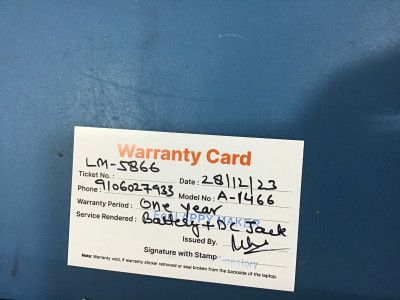 Warranty Card
LM-5866
Ticket No.: Date: 28/12/23
Phone: 9106027933 Model No: A-1466
Warranty Period: One year
LAPPY MAKER
Service Rendered: Battery + DC Jack
Issued By.
Signature with Stamp
Note: Warranty void, if warranty sticker removed or seal broken from the backside of the laptop.